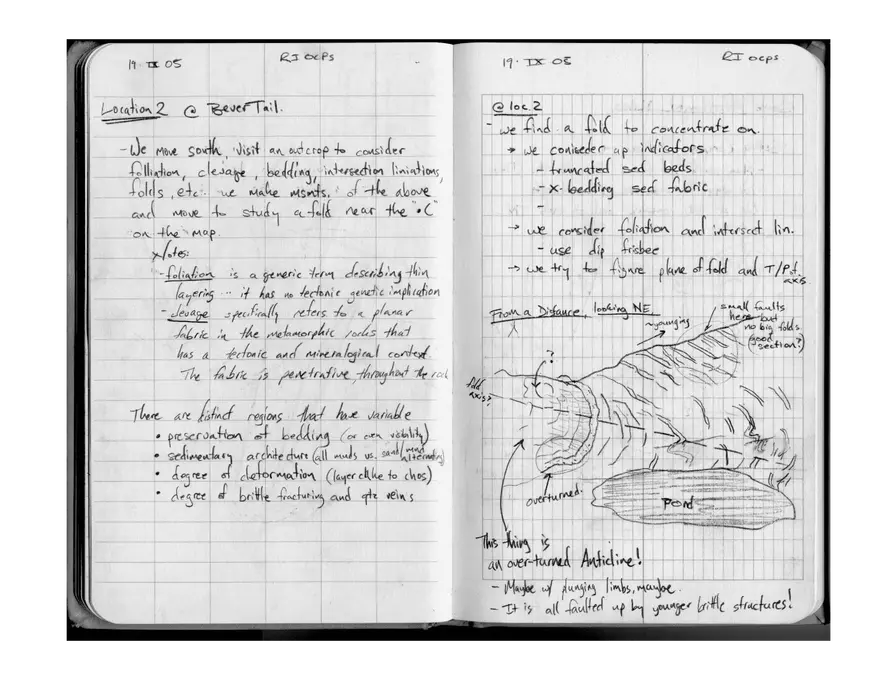 19 IX 05
RI OCPS
Location 2 @ BeverTail.
- We move south, visit an outcrop to consider
folliation, clevage, bedding, intersection liniations,
folds, etc. we make msmts. of the above
and move to study a fold near the "•C"
on the map.
Notes:
- foliation is a generic term describing thin
layering ... it has no tectonic genetic implication
- clevage specifically refers to a planar
fabric in the metamorphic rocks that
has a tectonic and mineralogical context.
The fabric is penetrative, throughout the rock
There are distinct regions that have variable
• preservation of bedding (or even visibility)
• sedimentary architecture (all muds vs. sand/mud alternating)
• degree of deformation (layer clike to chos)
• degree of brittle fracturing and qtz veins
19. IX 05
RI ocps
@ loc. 2
- we find a fold to concentrate on.
→ we coniseder up indicators
- truncated sed beds
- x-bedding sed fabric
-
→ we consider foliation and intersect lin.
- use dip frisbee
→ we try to figure plane of fold and T/P of axis
From a Distance, looking NE.
~younging
small faults
here but
no big folds
(good
section?)
?
fold
axis?
overturned.
Pond
This thing is
an over-turned Anticline!
- Maybe w/ plunging limbs, maybe.
- It is all faulted up by younger brittle structures!